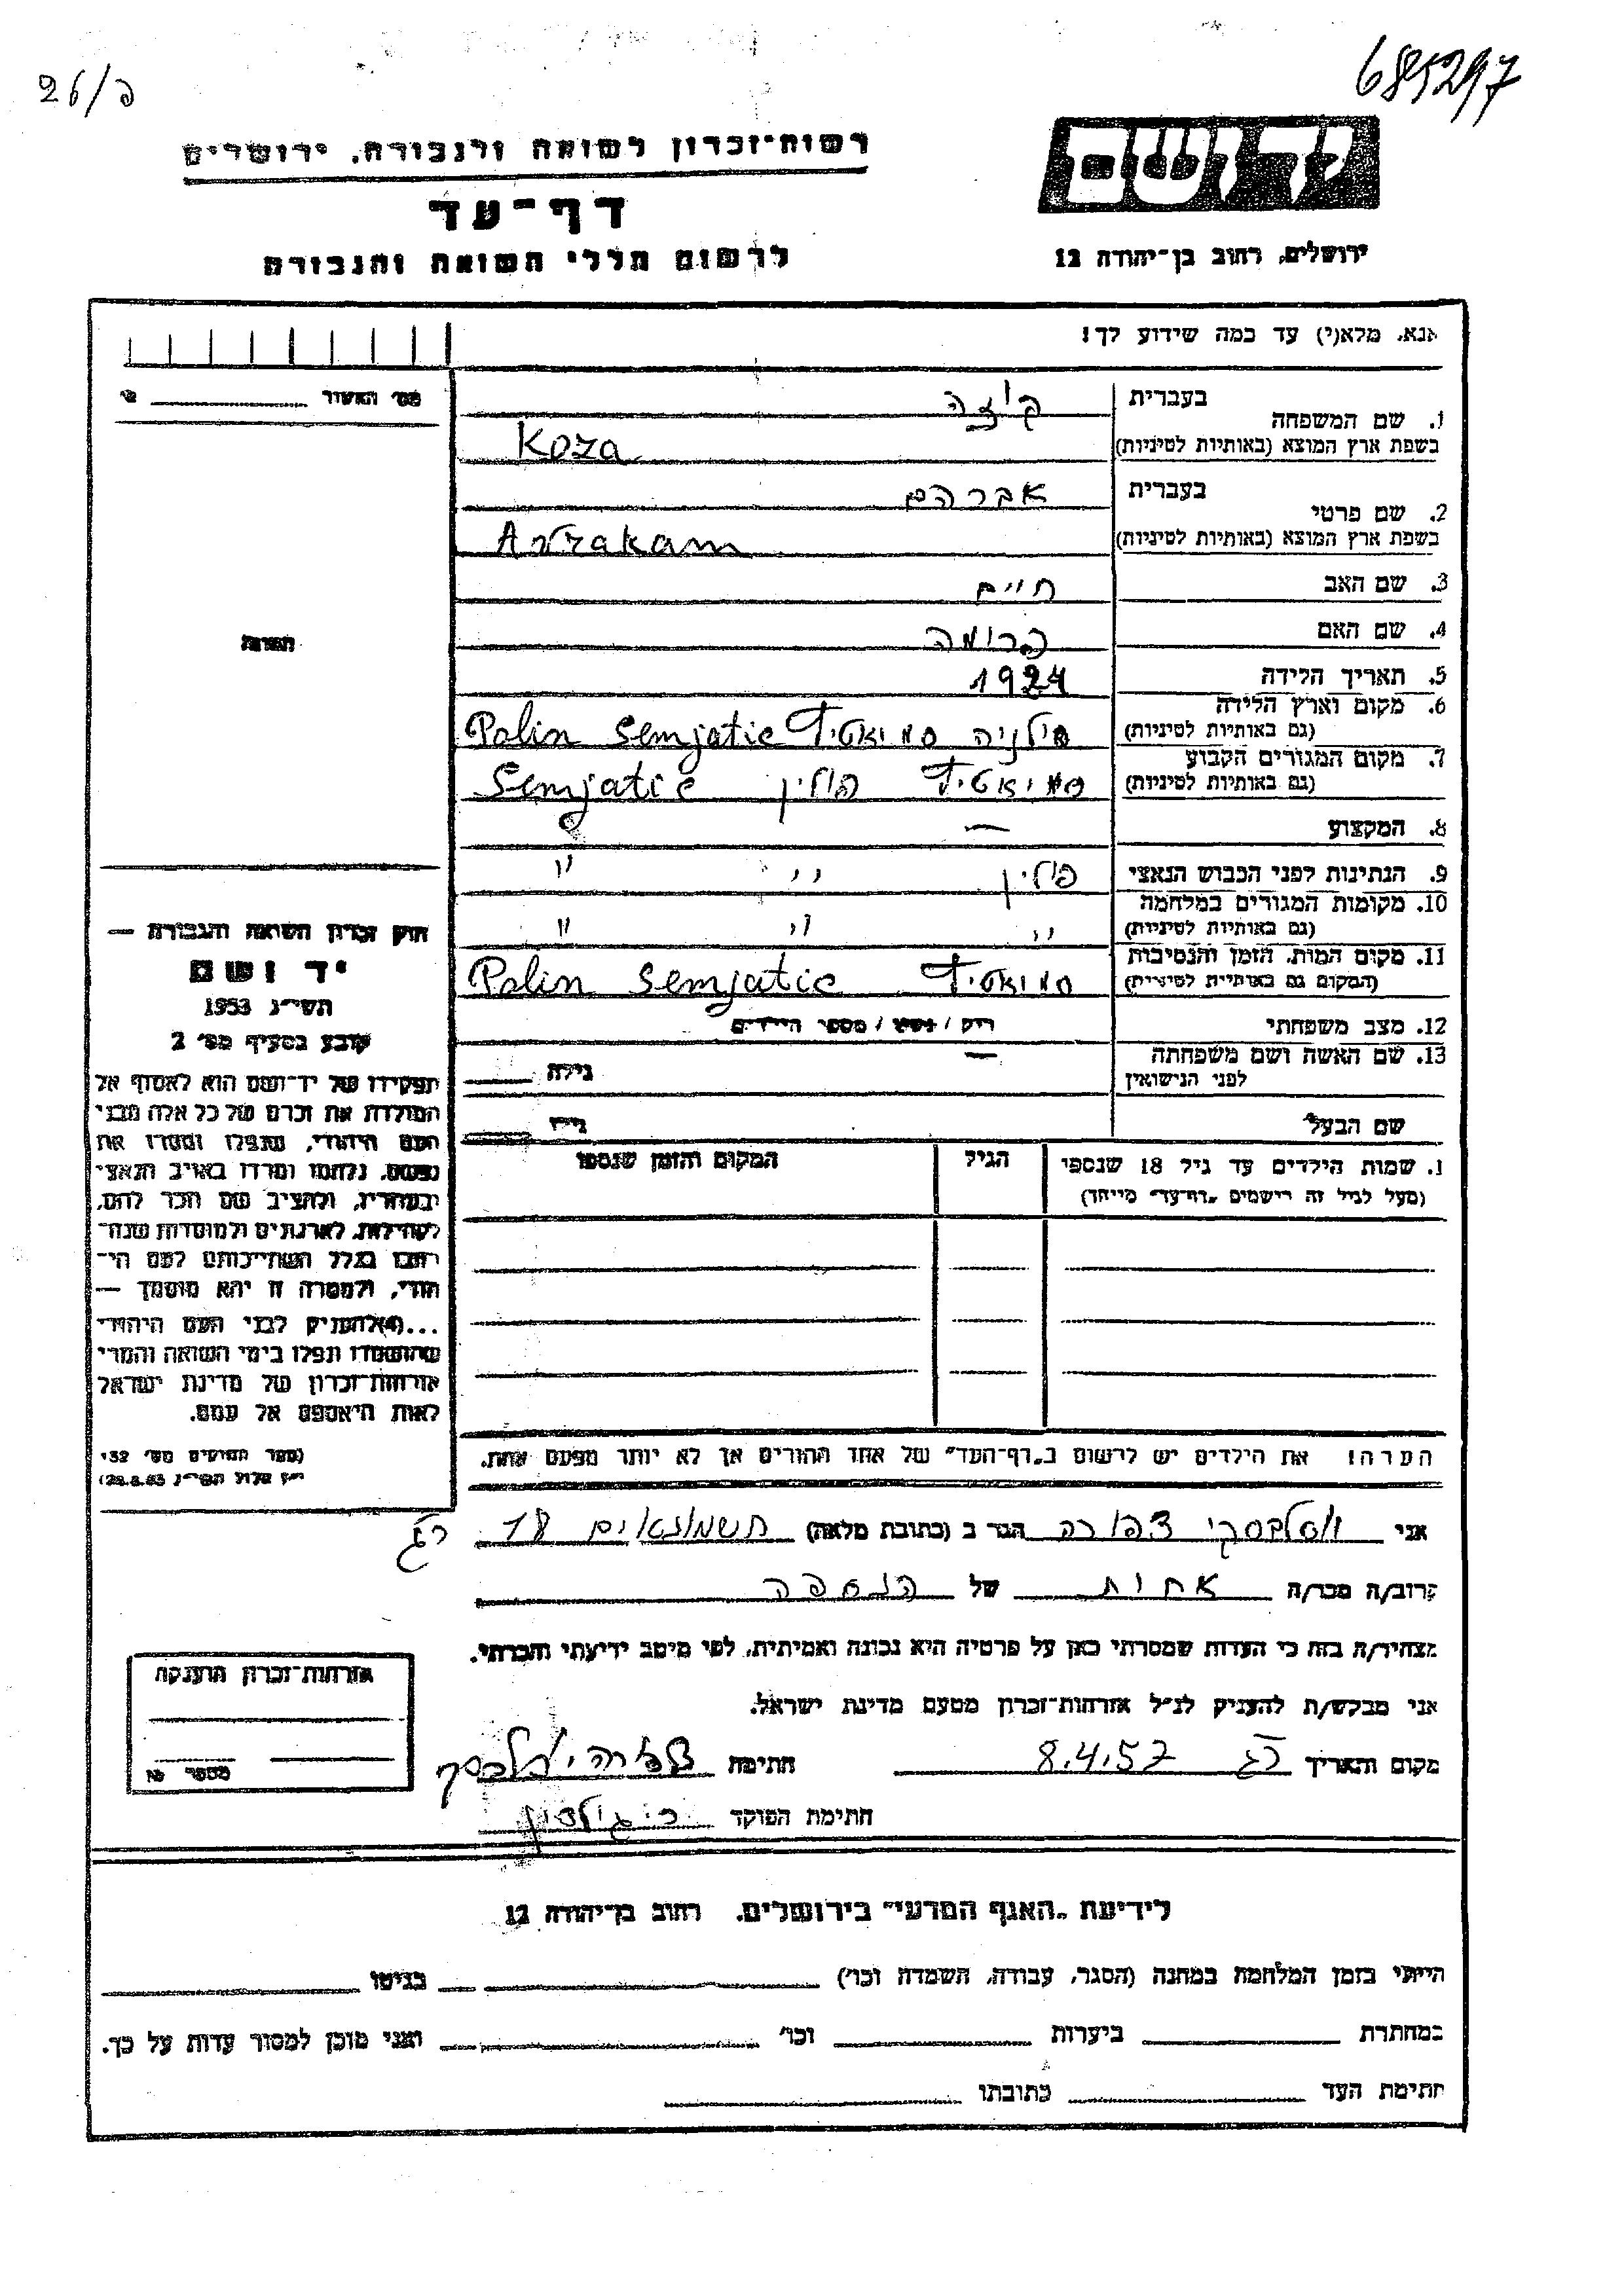 685297
26/כ
יד ושם
ירושלים, רחוב בן-יהודה 12
רשות-זכרון לשואה ולגבורה, ירושלים
דף-עד
לרשום חללי השואה והגבורה
אנא, מלא(י) עד כמה שידוע לך!
מס' האשור
1. שם המשפחה
בעברית
קוזה
בשפת ארץ המוצא (באותיות לטיניות)
Koza
2. שם פרטי
בעברית
אברהם
בשפת ארץ המוצא (באותיות לטיניות)
Avrakam
3. שם האב חיים
4. שם האם פרומה
5. תאריך הלידה 1924
6. מקום וארץ הלידה
(גם באותיות לטיניות)
פולניה סמיאטיץ Polin Semjatic
7. מקום המגורים הקבוע
(גם באותיות לטיניות)
סמיאטיץ פולין Semjatic
8. המקצוע —
9. הנתינות לפני הכבוש הנאצי פולין " "
10. מקומות המגורים במלחמה
(גם באותיות לטיניות)
" " "
11. מקום המות, הזמן והנסיבות
(המקום גם באותיות לטיניות)
סמיאטיץ Polin Semjatic
12. מצב משפחתי רוק / נשוי / מספר הילדים
13. שם האשה ושם משפחתה
לפני הנישואין
— גילה
שם הבעל גילו
תמונה
חוק זכרון השואה והגבורה —
יד ושם
תשי"ג 1953
קובע בסעיף מס' 2
תפקידו של יד-ושם הוא לאסוף אל
המולדת את זכרם של כל אלה מבני
העם היהודי, שנפלו ומסרו את
נפשם, נלחמו ומרדו באויב הנאצי
ובעוזריו, ולהציב שם וזכר להם,
לקהילות, לארגונים ולמוסדות שנח-
רבו בגלל השתייכותם לעם הי-
הודי, ולמטרה זו יהא מוסמך —
...(4) להעניק לבני העם היהודי
שהושמדו ונפלו בימי השואה והמרי
אזרחות-זכרון של מדינת ישראל
לאות היאספם אל עמם.
(ספר החוקים מס' 132
י"ז אלול תשי"ג 28.8.53)
ו. שמות הילדים עד גיל 18 שנספו
(מעל לגיל זה רישמים „דף-עד" מייחד)
הגיל
המקום והזמן שנספו
הערה! את הילדים יש לרשום ב„דף-העד" של אחד ההורים אך לא יותר מפעם אחת.
אני וסלבסקי צפורה הגר ב (כתובת מלאה) חשמונאים 18 רג
קרוב/ה מכר/ה אחות של הנספה
מצהיר/ה בזה כי העדות שמסרתי כאן על פרטיה היא נכונה ואמיתית, לפי מיטב ידיעתי והכרתי.
אני מבקש/ת להעניק לנ"ל אזרחות-זכרון מטעם מדינת ישראל.
מקום ותאריך רג 8.4.57 חתימה
חתימת הפוקד
אזרחות-זכרון הוענקה
מספר
לידיעת „האגף המדעי" בירושלים, רחוב בן-יהודה 12
הייתי בזמן המלחמה במחנה (הסגר, עבודה, השמדה וכו') בגיטו
במחתרת ביערות וכו' ואני מוכן למסור עדות על כך.
חתימת העד כתובתו